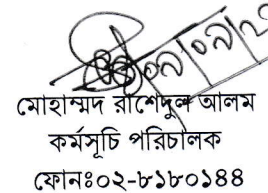 মোহাম্মদ রাশেদুল আলম
কর্মসূচি পরিচালক
ফোনঃ০২-৮১৪০১৪৪